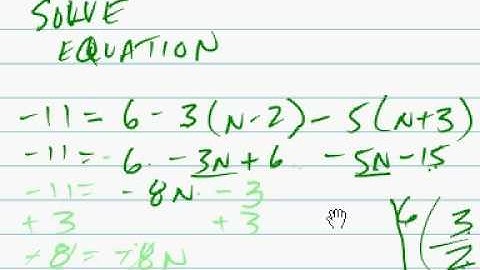 SOLVE
EQUATION
-11 = 6 - 3(N-2) - 5(N+3)
-11 = 6 - 3N + 6 - 5N - 15
-11 = -8N - 3
+3 +3
-8 = -8N
3
2